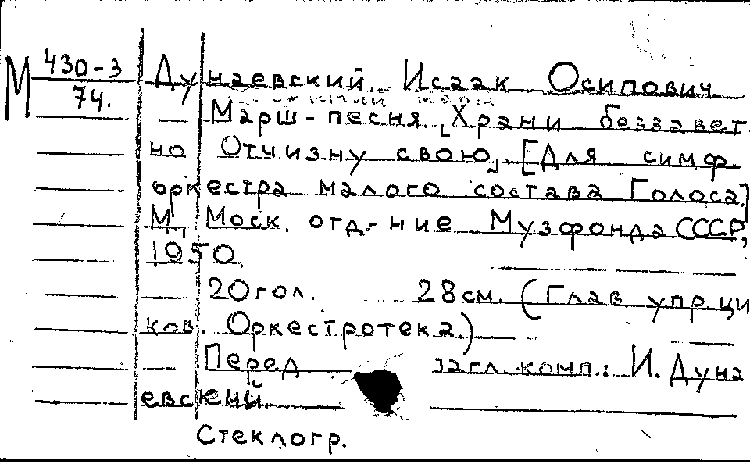 М 430-3
74.
Дунаевский Исаак Осипович
Марш-песня „Храни беззавет
но Отчизну свою„ [Для симф.
оркестра малого состава Голоса]
М., Моск. отд-ние Музфонда СССР,
1950
20 гол. 28 см. (Глав упр. ци
ков. Оркестротека.)
Перед загл. комп.: И. Дуна
евский.
Стеклогр.